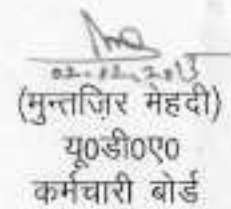 02.02.2013
(मुन्तज़िर मेहदी)
यू0डी0ए0
कर्मचारी बोर्ड